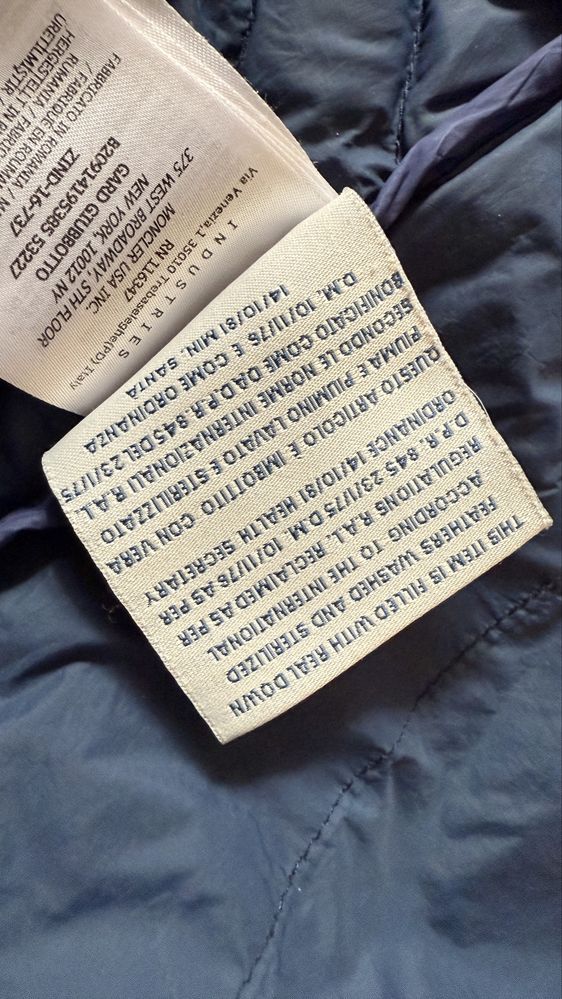 THIS ITEM IS FILLED WITH REAL DOWN
FEATHERS WASHED AND STERILIZED
ACCORDING TO THE INTERNATIONAL
REGULATIONS R.A.L. RECLAIMED AS PER
D.P.R. 845 23/1/75 D.M. 10/11/76 AS PER
ORDINANCE 14/10/81 HEALTH SECRETARY
QUESTO ARTICOLO E IMBOTTITO CON VERA
PIUMA E PIUMINO LAVATO E STERILIZZATO
SECONDO LE NORME INTERNAZIONALI R.A.L.
BONIFICATO COME DA D.P.R. 845 DEL 23/1/75
D.M. 10/11/76 E COME ORDINANZA
14/10/81 MIN. SANTÀ
INDUSTRIES
Via Venezia,1 35010 Trebaseleghe(PD) Italy
RN 114347
MONCLER USA INC
375 WEST BROADWAY, 5TH FLOOR
NEW YORK, 10012 NY
GARD GIUBBOTTO
B20914195385 53227
ZIND-16-737
FABRICATO IN ROMANIA
FABRIQUE EN
RUMANIA /
HERGESTELLT IN
ÜRETİLMİŞTİR